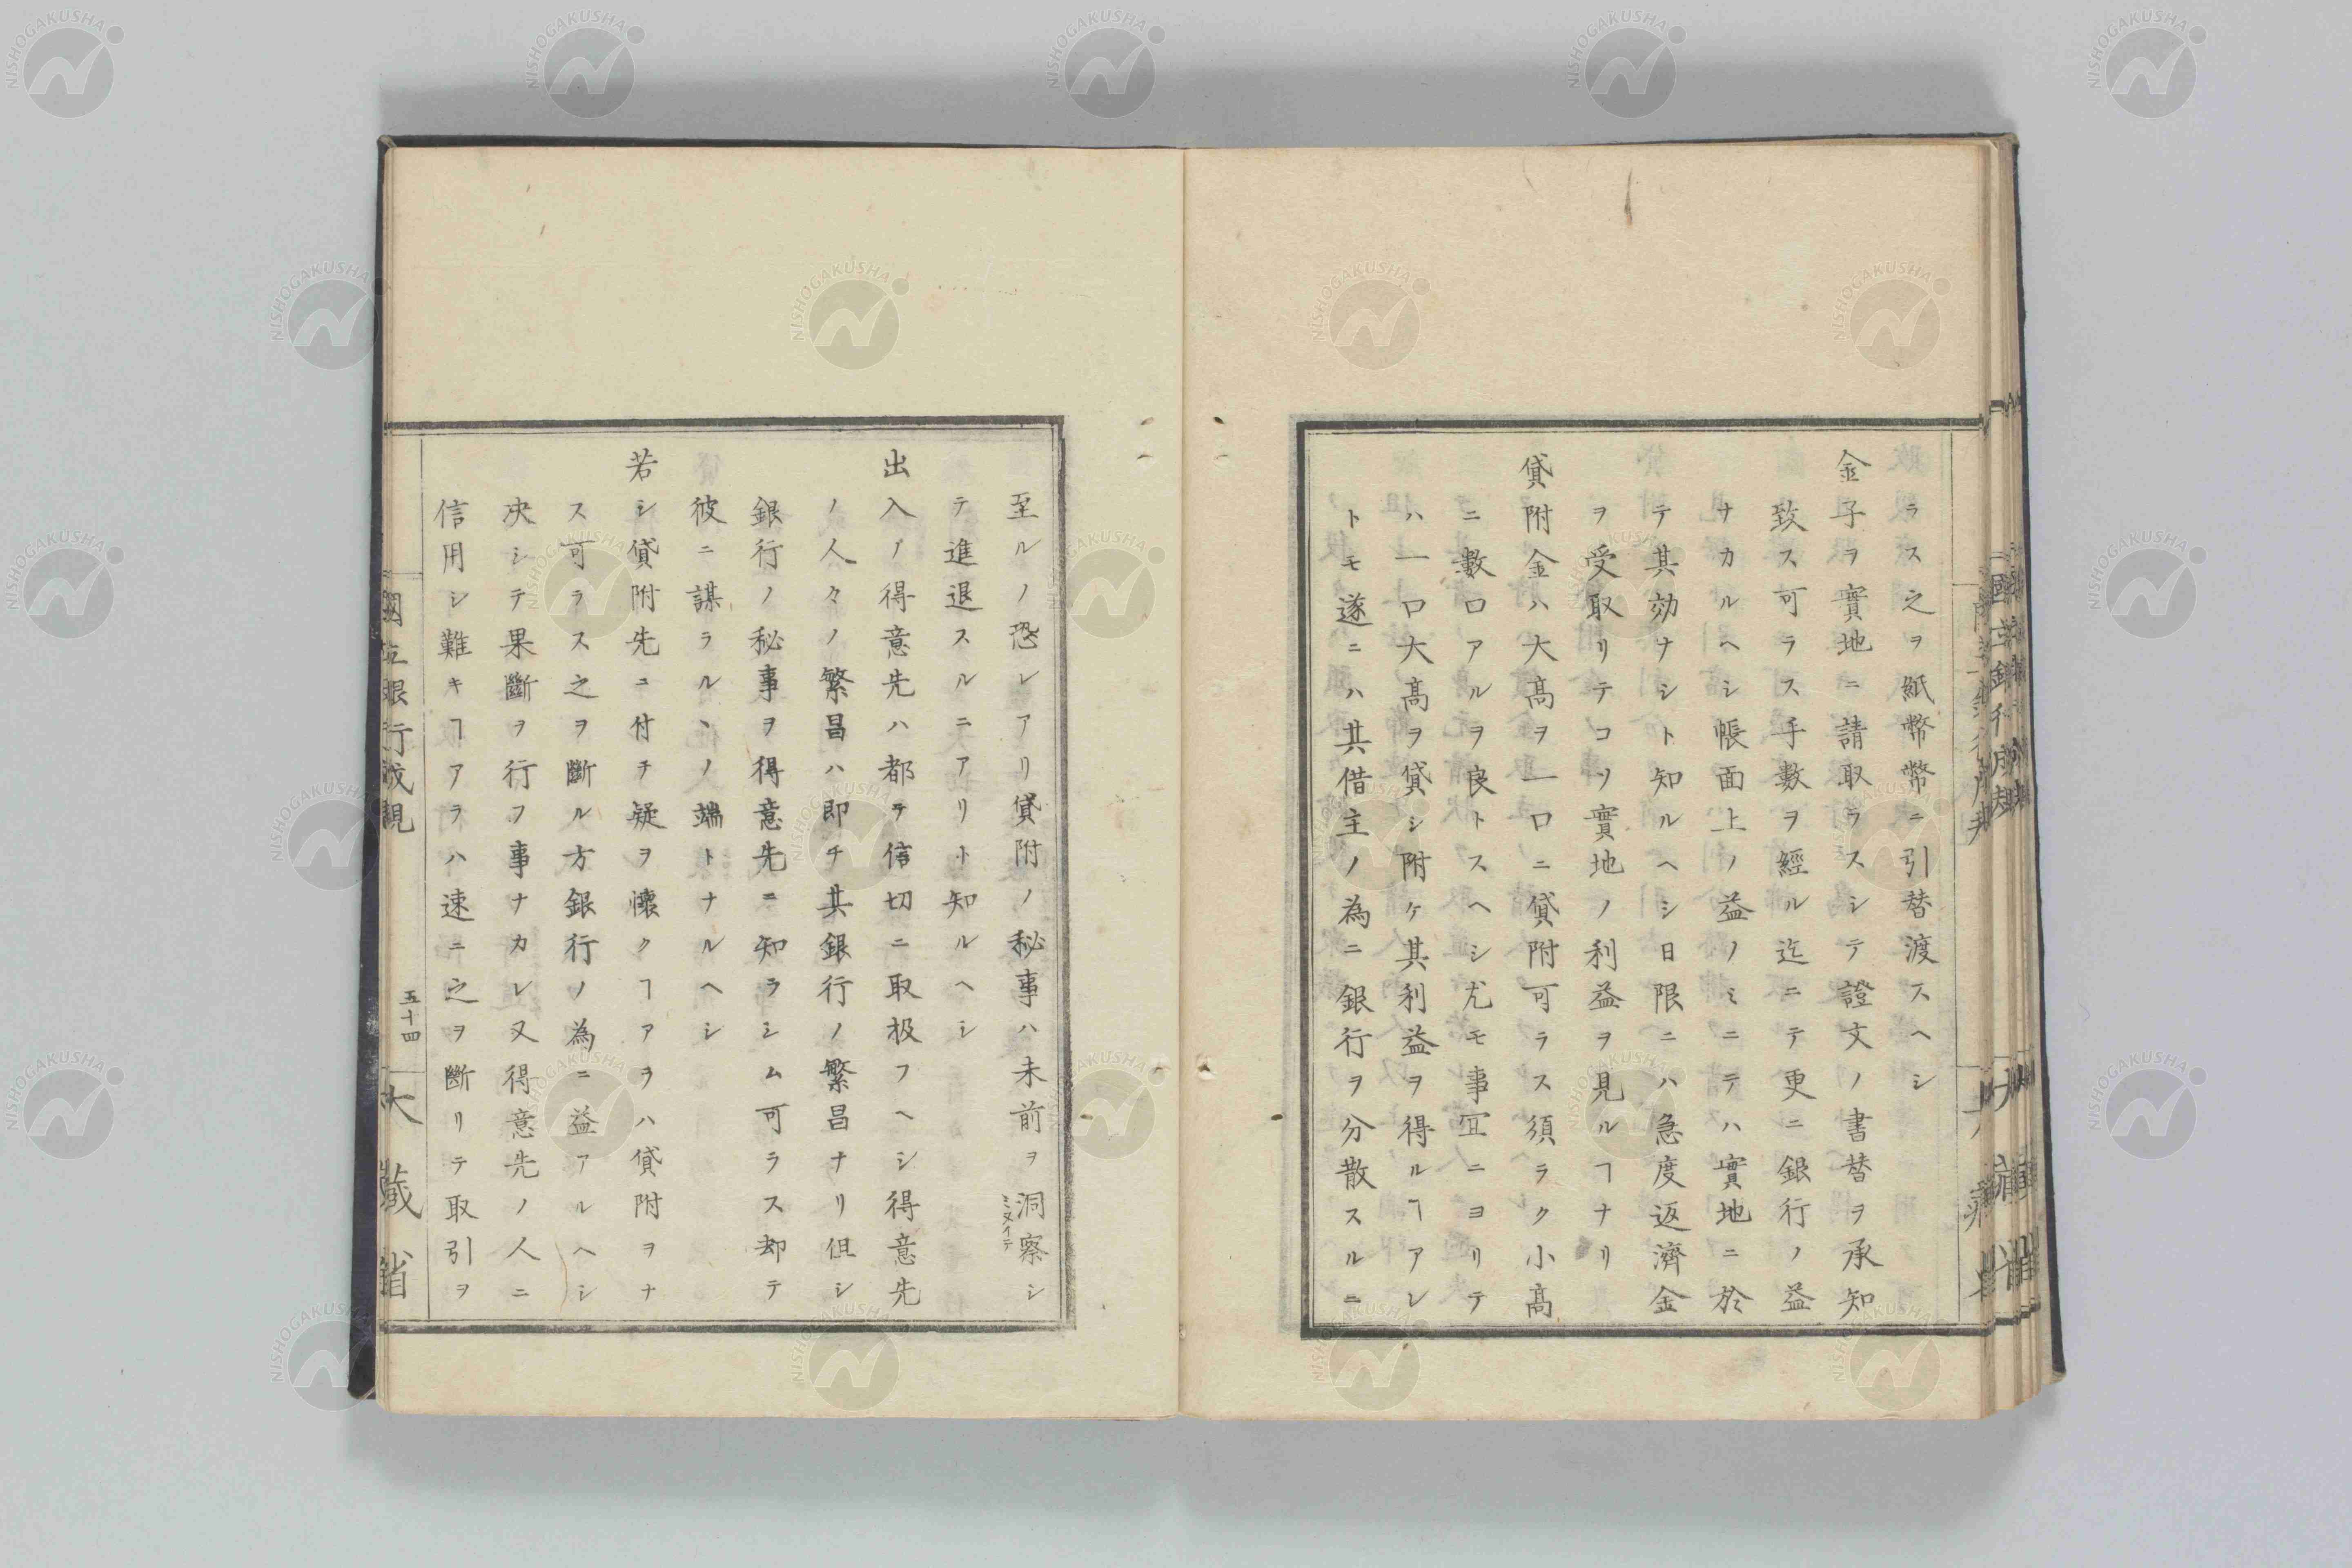 ラス之ヲ紙幣幣ニ引替渡スヘシ
金子ヲ實地ニ請取ラスシテ證文ノ書替ヲ承知
致ス可ラス手數ヲ經ル迄ニテ更ニ銀行ノ益
ナカルヘシ帳面上ノ益ノミニテハ實地ニ於
テ其効ナシト知ルヘシ日限ニハ急度返濟金
ヲ受取リテコソ實地ノ利益ヲ見ルヿナリ
貸附金ハ大髙ヲ一口ニ貸附可ラス須ラク小髙
ニ數口アルヲ良トスヘシ尤モ事冝ニヨリテ
ハ一口大髙ヲ貸シ附ケ其利益ヲ得ルヿアレ
トモ遂ニハ其借主ノ為ニ銀行ヲ分散スルニ
至ルノ恐レアリ貸附ノ秘事ハ未前ヲ洞察シ
ミヌイテ
テ進退スルニアリト知ルヘシ
出入ノ得意先ハ都テ信切ニ取扱フヘシ得意先
ノ人々ノ繁昌ハ即チ其銀行ノ繁昌ナリ但シ
銀行ノ秘事ヲ得意先ニ知ラシム可ラス却テ
彼ニ謀ラルヽノ端トナルヘシ
若シ貸附先ニ付チ疑ヲ懐クヿアラハ貸附ヲナ
ス可ラス之ヲ斷ル方銀行ノ為ニ益アルヘシ
决シテ果斷ヲ行フ事ナカレ又得意先ノ人ニ
信用シ難キヿアラハ速ニ之ヲ斷リテ取引ヲ
國立銀行成規
五十四
大藏省
NISHOGAKUSHA